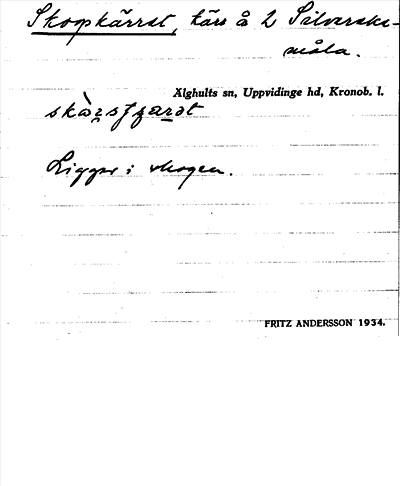 Skogskärret, kärr å 2 Silverske-
måla.
Älghults sn, Uppvidinge hd, Kronob. l.
Ligger i skogen.
FRITZ ANDERSSON 1934.